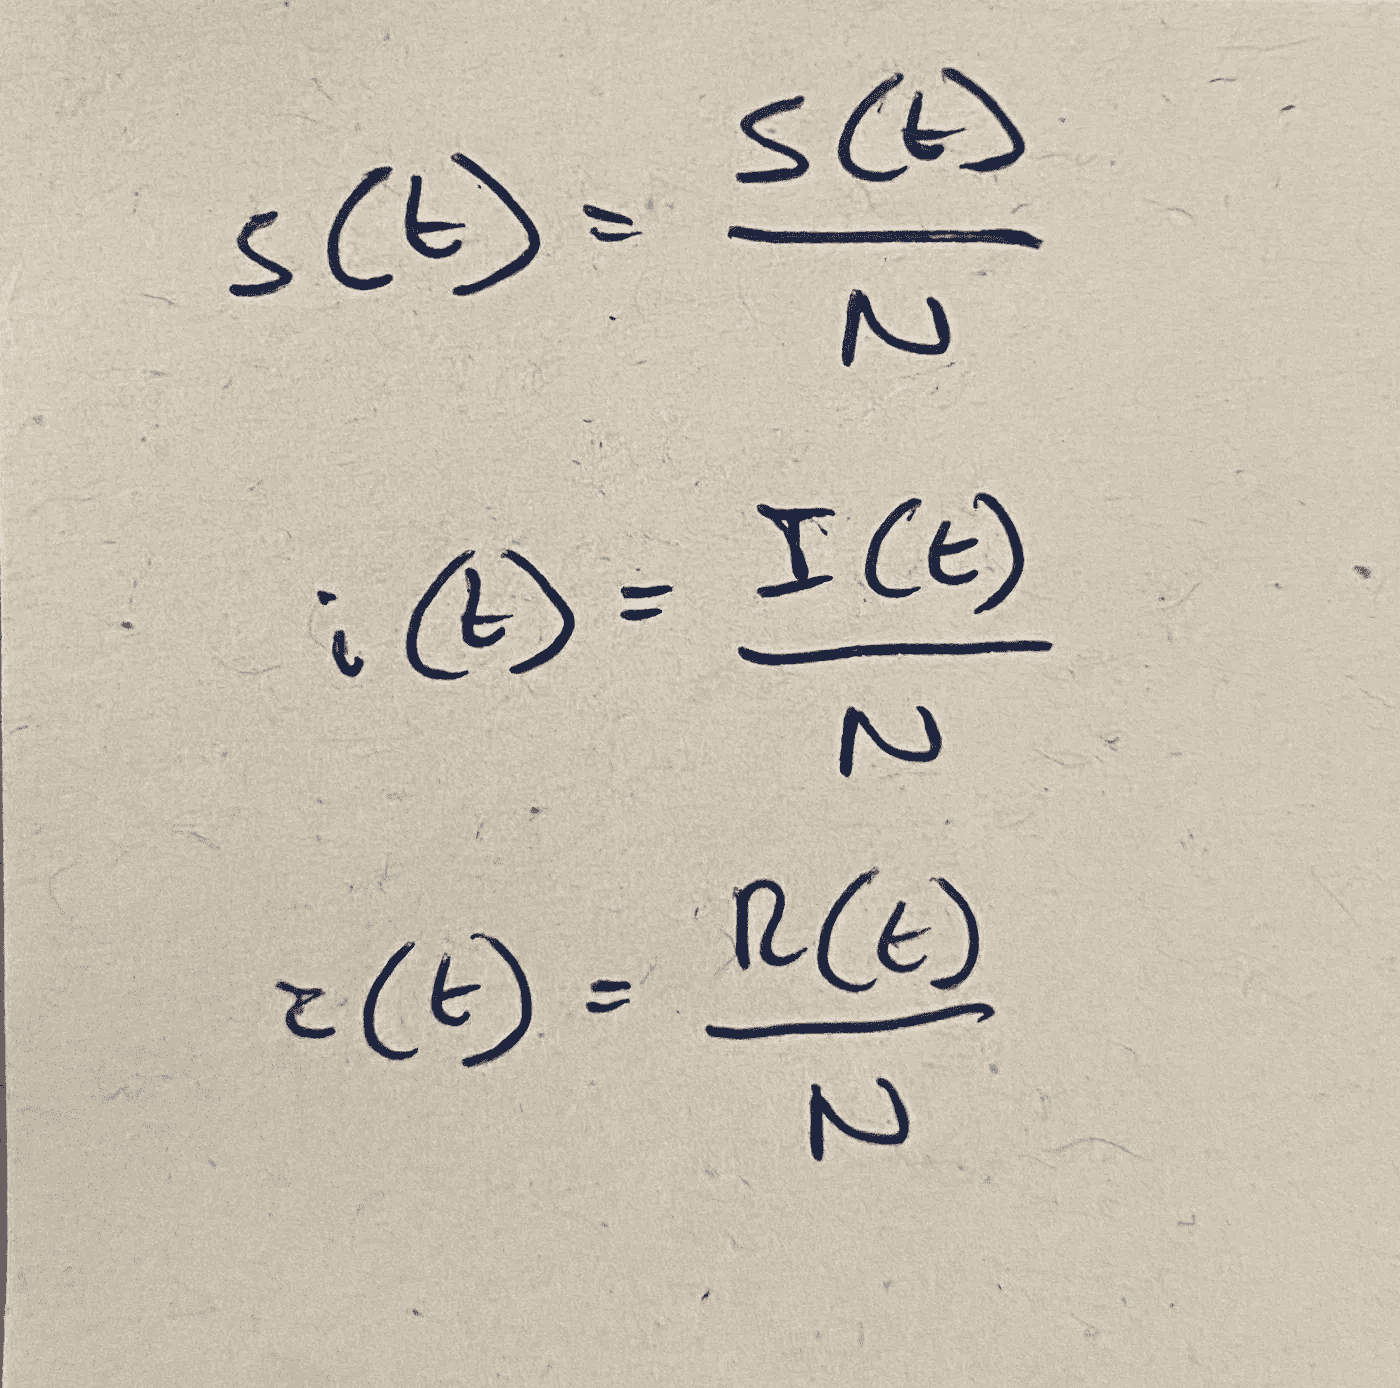 s(t) = S(t)/N
i(t) = I(t)/N
r(t) = R(t)/N